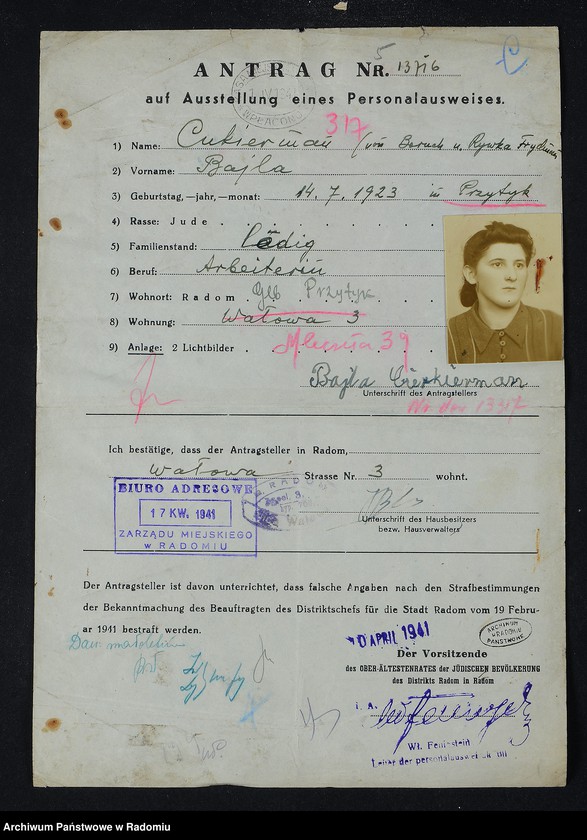 5
ANTRAG NR. 13716
auf Ausstellung eines Personalausweises.
317
1) Name: Cukierman (von Boruch u. Rywka Frydman
2) Vorname: Bajla
3) Geburtstag, —jahr, —monat: 14. 7. 1923 in Przytyk
4) Rasse: Jude
5) Familienstand: lädig
6) Beruf: Arbeiterin
7) Wohnort: Radom Przytyk
8) Wohnung: Wałowa 3
9) Anlage: 2 Lichtbilder 39
Bajla Cukierman
Unterschrift des Antragstellers
Ich bestätige, dass der Antragsteller in Radom,
Wałowa Strasse Nr. 3 wohnt.
BIURO ADRESOWE
17 KW. 1941
ZARZĄDU MIEJSKIEGO
W RADOMIU
Unterschrift des Hausbesitzers
bezw. Hausverwalters
Der Antragsteller ist davon unterrichtet, dass falsche Angaben nach den Strafbestimmungen
der Bekanntmachung des Beauftragten des Distriktschefs für die Stadt Radom vom 19 Febru-
ar 1941 bestraft werden.
APRIL 1941
ARCHIWUM
PAŃSTWOWE
Der Vorsitzende
des OBER-ÄLTESTENRATES der JÜDISCHEN BEVÖLKERUNG
des Distrikts Radom in Radom
I. A.
Wł. Fenigstein
Leiter der personalausweis
Archiwum Państwowe w Radomiu